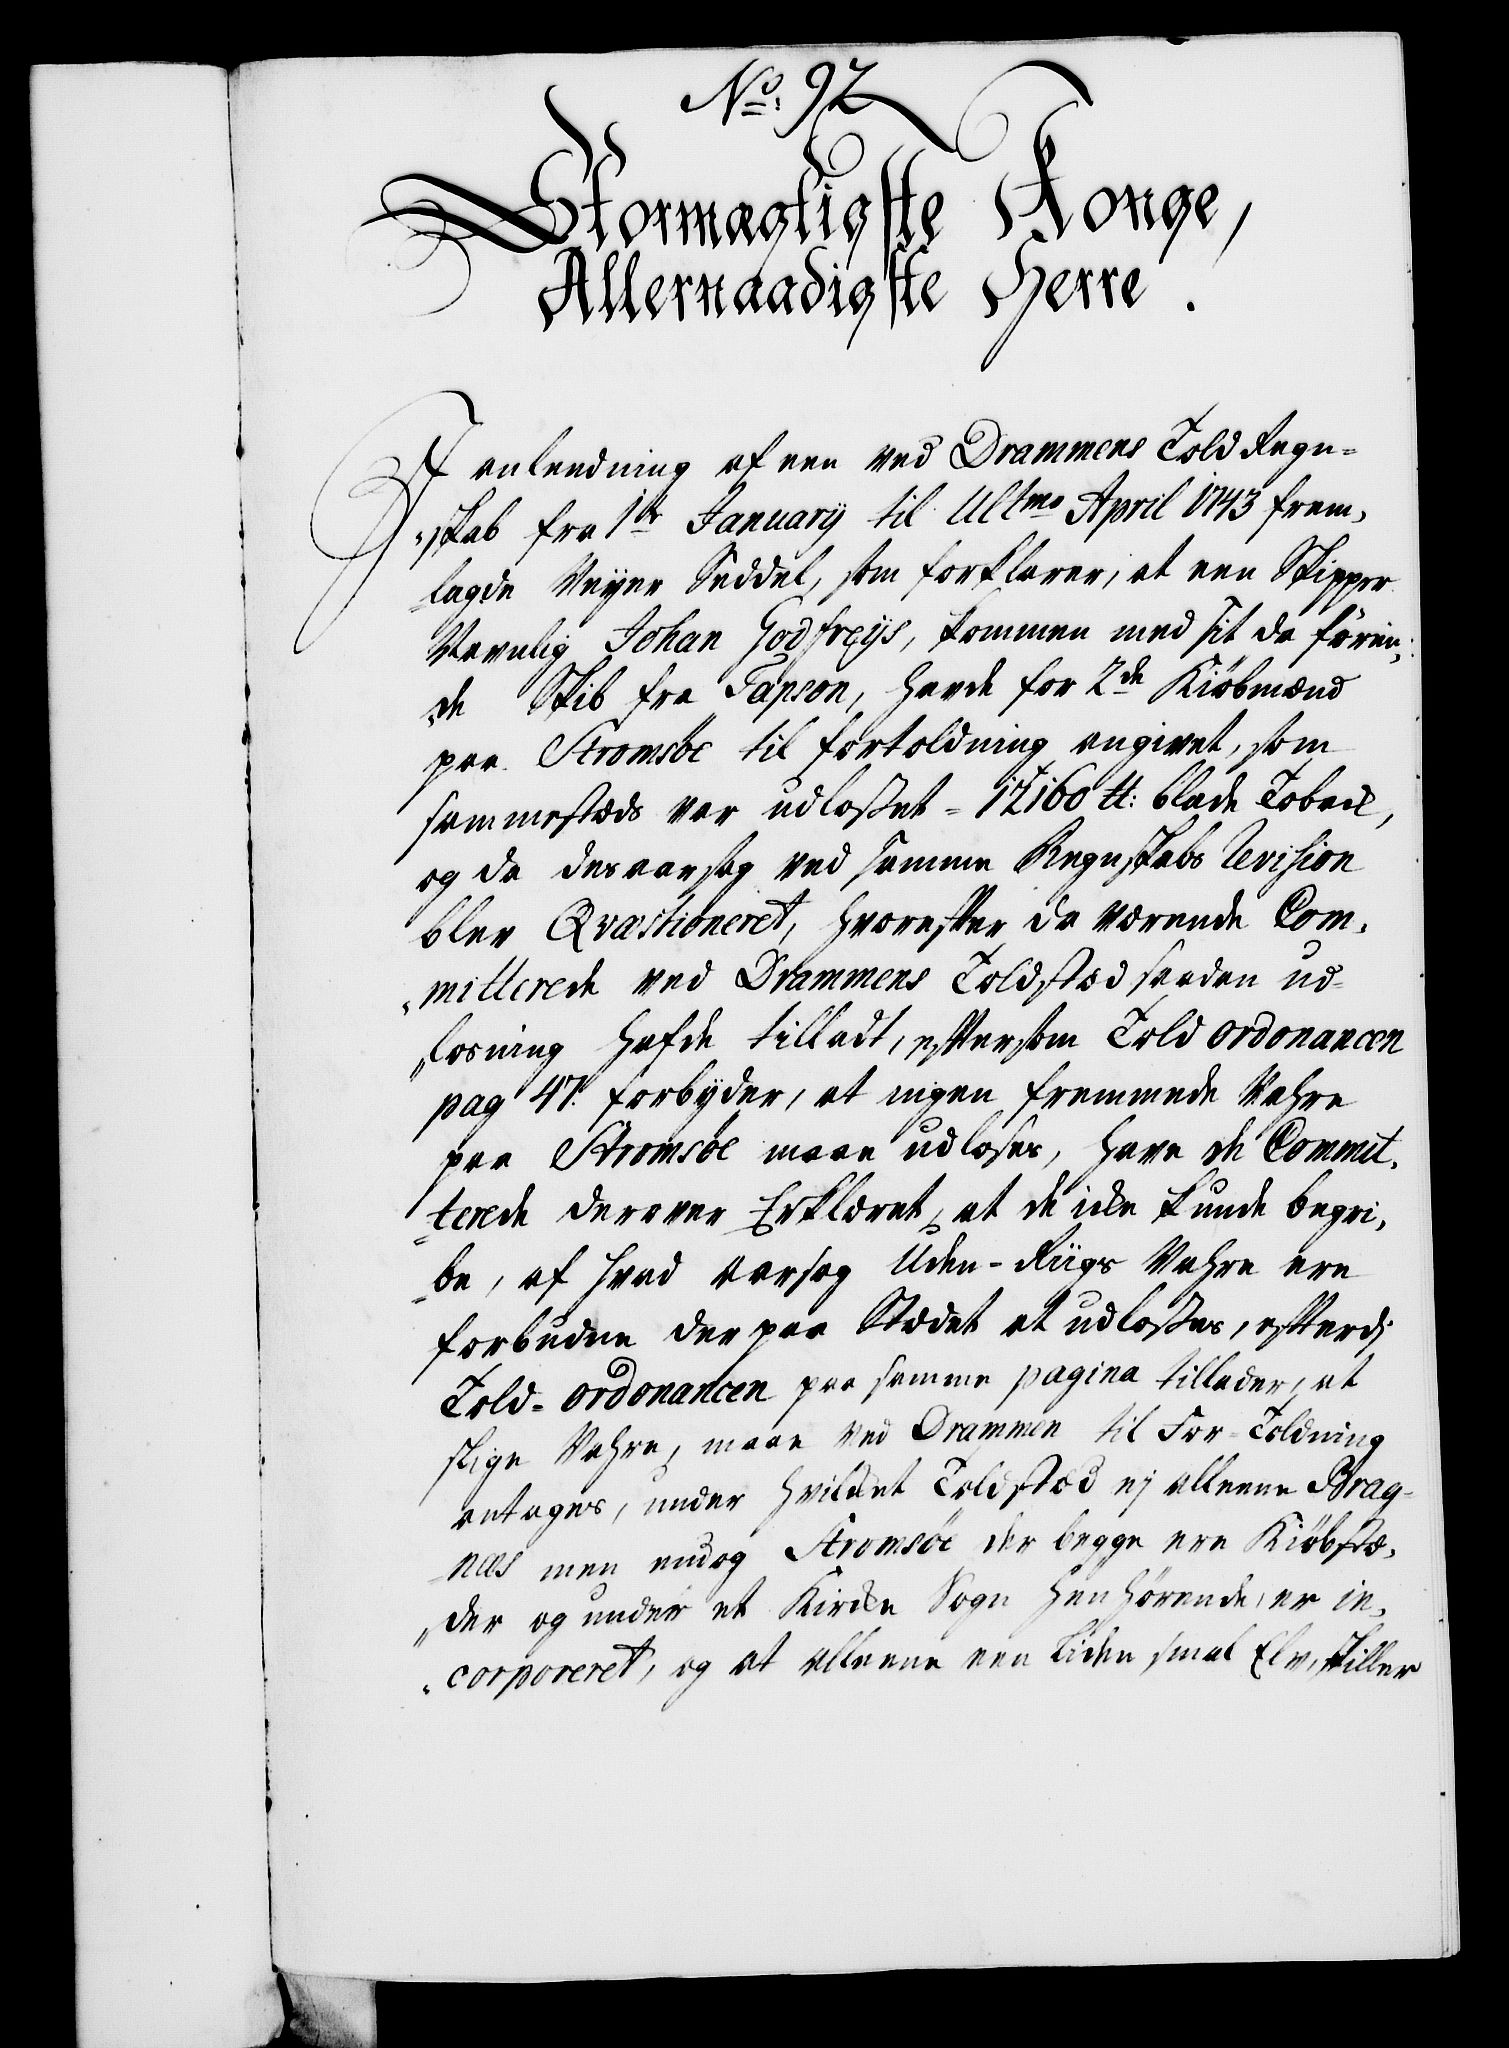 No: 92
Stormægtigste Konge,
Allernaadigste Herre.
I anleedning af een ved Drammens Told Regn=
„skab fra 1ste January til Ultmo April 1743 frem„
„lagde Veyer Seddel, som forklarer, at een Skipper
Navnlig Johan Godfreÿs, kommen med sit da förin„
„de Skib fra Tapson, havde for 2de Kiöbmænd
paa Stromsöe til fortoldning angivet, som
sammestæds var udlosset = 12160 ℔: blade Toback,
og da des aarsag ved samme Regnskabs Revision
blev Qvæstioneret, hvorefter da værende Com„
„mitterede ved Drammens Toldstæd saadan ud=
„losning hafde tilladt, eftersom Told ordonancen
pag 47. forbÿder, at ingen fremmede Vahre
paa Stromsöe maae udloses, have de Commit„
„terede derover Erklæret, at de icke kunde begri„
„be, af hvad aarsag Uden-Riigs Vahre ere
forbudne der paa Stædet at udlosses, efterdj
Told-ordonancen paa samme pagina tillader, at
slige Vahre, maae ved Drammen til For-Toldning
antages, under hvilcket Toldstæd ej alleene Brag=
„næs men endog Stromsöe der begge ere Kiöbstæ„
„der og under et Kircke Sogn henhörende, er in„
„corporeret, og at alleene een liden smal Elv, skiller